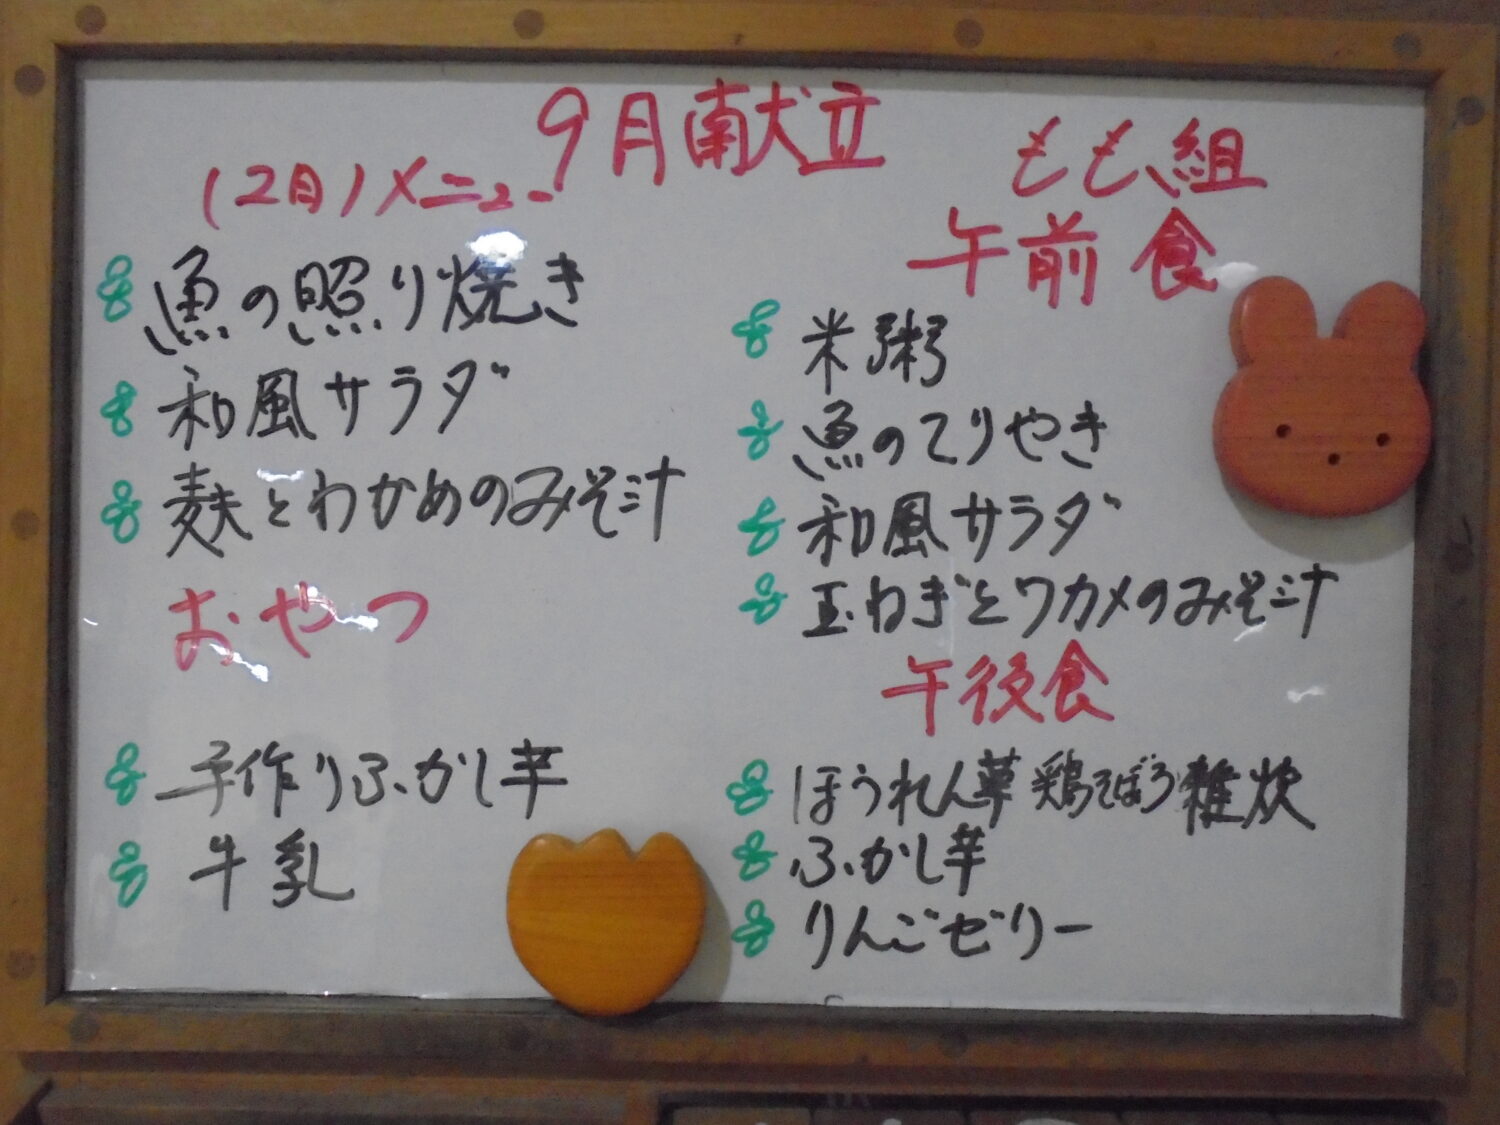 9月献立
(2日)メニュー
魚の照り焼き
和風サラダ
麩とわかめのみそ汁
おやつ
手作りふかし芋
牛乳
もも組
午前食
米粥
魚のてりやき
和風サラダ
玉ねぎとワカメのみそ汁
午後食
ほうれん草鶏そぼろ雑炊
ふかし芋
りんごゼリー